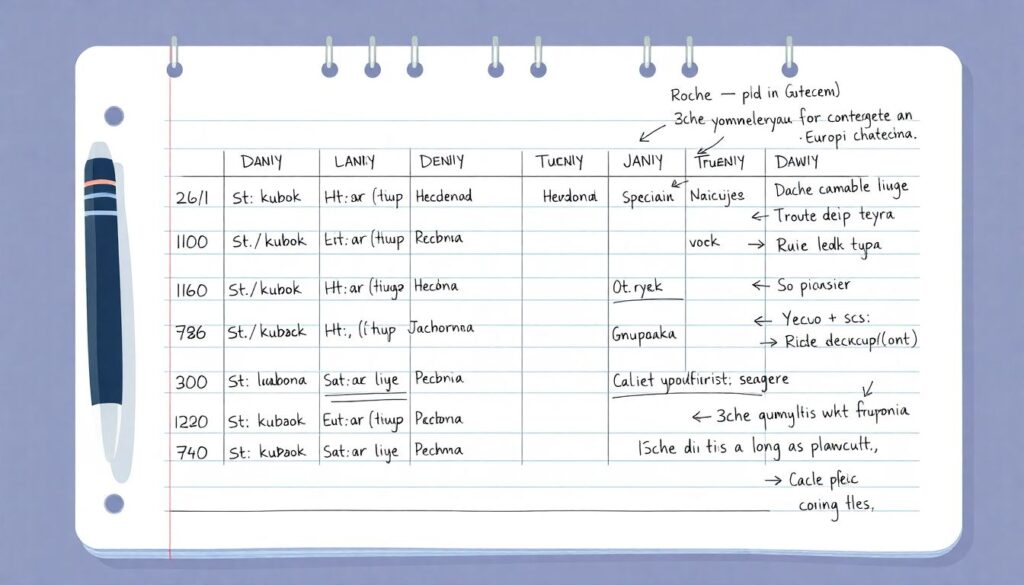 Roche — pld in Gutecem)
3che yomneleryau for contergete an
· Europi chatecina.
DANIY LANIY DENIY TUCNIY JANIY TrueNIY DAWIY
26/1 St: kubok Ht:ar (tiup Hecdenad Hevdona Speciain Naicujes Dache camable liuge
← Troute deip teyra
1100 St./kubok Eit:ar (tiup Recbnia vock → Ruie ledk typa
1160 St./kubok Ht:ar (tiuga Hecóna Ot.ryek ← So piansier
← Yecuo + scs:
786 St./kuback Ht:, (i'hup Jachornna Gnupaaka → Ride deckcup/(ont)
300 St: luabona Sat:ar liye Pecbnia Caliet ypudfiirist: seagere
1220 St: kubaok Eut:ar (tiup Pectona ← 3che qumyltis wkt fruponia
740 St: kubaok Sat:ar liye Pechma 13che dii tis a long as plawcutt.,
→ Cacle pfeic
coring tles,